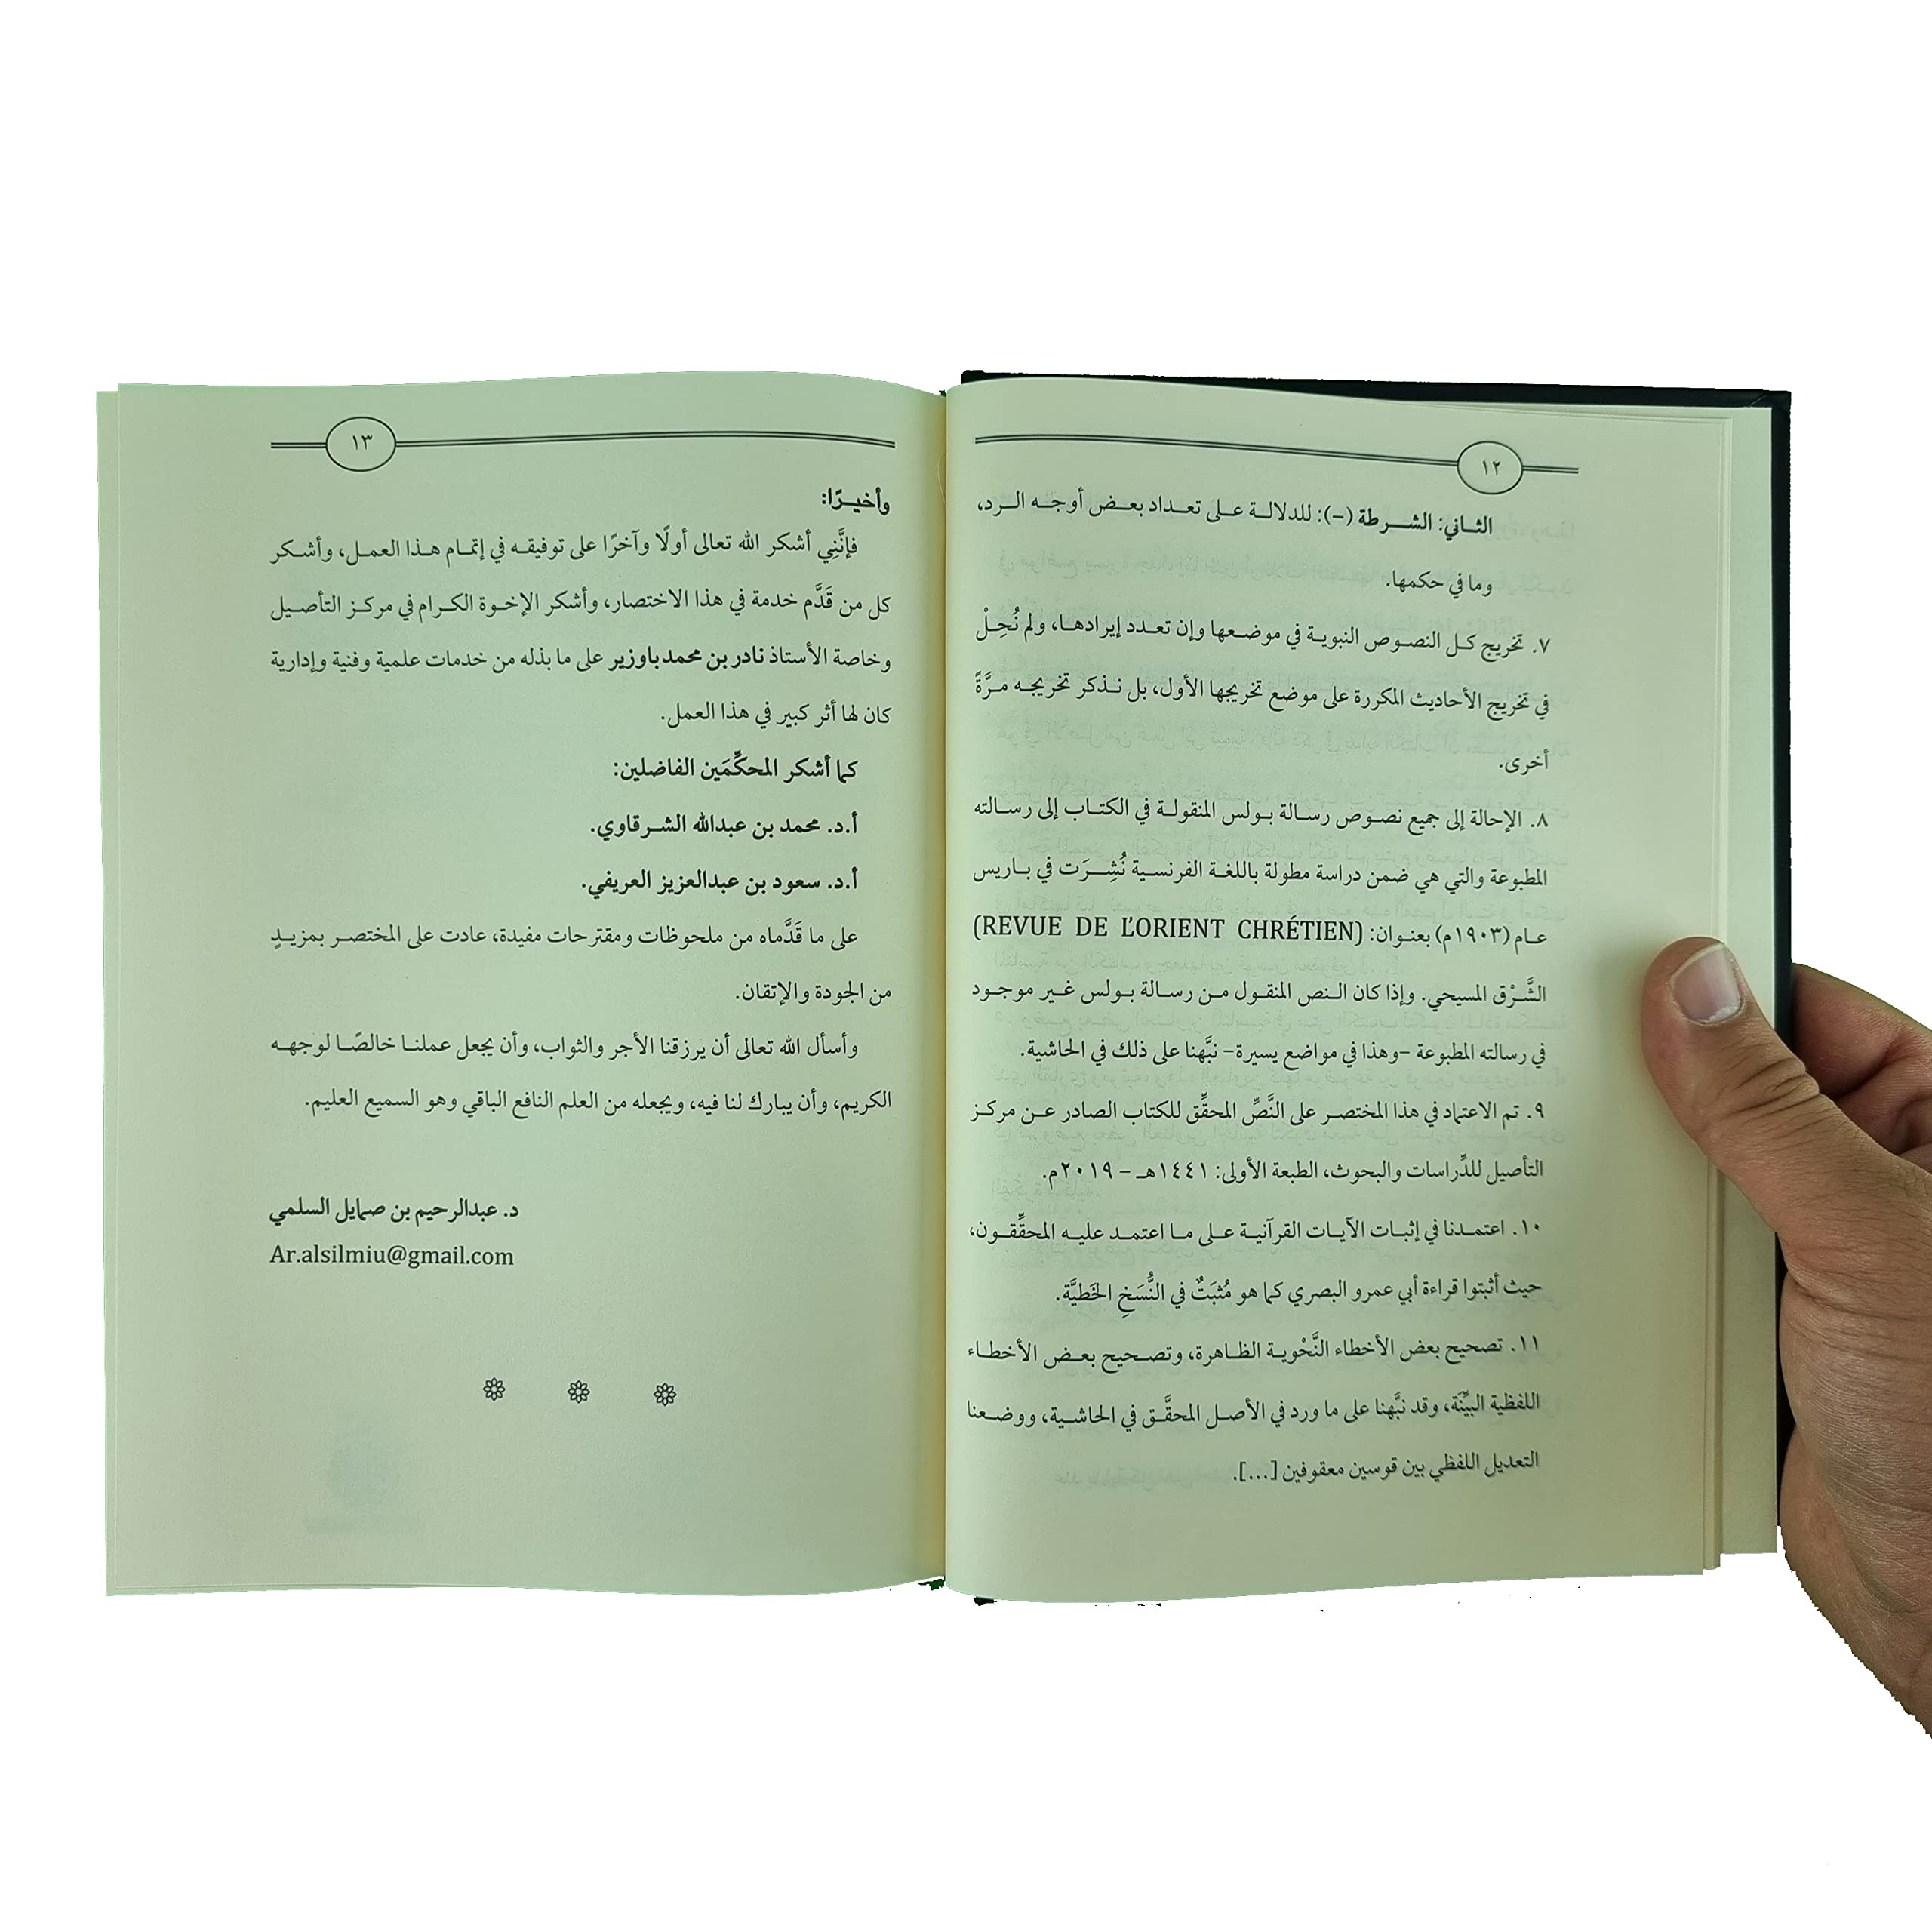 ١٢
الثاني: الشرطة (-): للدلالة على تعداد بعض أوجه الرد،
وما في حكمها.
٧. تخريج كل النصوص النبوية في موضعها وإن تعدد إيرادها، ولم نُحِلْ
في تخريج الأحاديث المكررة على موضع تخريجها الأول، بل نذكر تخريجه مرَّةً
أخرى.
٨. الإحالة إلى جميع نصوص رسالة بولس المنقولة في الكتاب إلى رسالته
المطبوعة والتي هي ضمن دراسة مطولة باللغة الفرنسية نُشِرَت في باريس
عام (١٩٠٣م) بعنوان: (REVUE DE L'ORIENT CHRÉTIEN)
الشَّرْق المسيحي. وإذا كان النص المنقول من رسالة بولس غير موجود
في رسالته المطبوعة -وهذا في مواضع يسيرة- نبَّهنا على ذلك في الحاشية.
٩. تم الاعتماد في هذا المختصر على النَّصِّ المحقَّق للكتاب الصادر عن مركز
التأصيل للدِّراسات والبحوث، الطبعة الأولى: ١٤٤١هـ - ٢٠١٩م.
١٠. اعتمدنا في إثبات الآيات القرآنية على ما اعتمد عليه المحقِّقون،
حيث أثبتوا قراءة أبي عمرو البصري كما هو مُثبَتٌ في النُّسَخِ الخَطيَّة.
١١. تصحيح بعض الأخطاء النَّحْوية الظاهرة، وتصحيح بعض الأخطاء
اللفظية البيِّنَة، وقد نبَّهنا على ما ورد في الأصل المحقَّق في الحاشية، ووضعنا
التعديل اللفظي بين قوسين معقوفين [...].
١٣
وأخيرًا:
فإنَّنِي أشكر الله تعالى أولًا وآخرًا على توفيقه في إتمام هذا العمل، وأشكر
كل من قَدَّم خدمة في هذا الاختصار، وأشكر الإخوة الكرام في مركز التأصيل
وخاصة الأستاذ نادر بن محمد باوزير على ما بذله من خدمات علمية وفنية وإدارية
كان لها أثر كبير في هذا العمل.
كما أشكر المحكِّمَين الفاضلين:
أ.د. محمد بن عبدالله الشرقاوي.
أ.د. سعود بن عبدالعزيز العريفي.
على ما قَدَّماه من ملحوظات ومقترحات مفيدة، عادت على المختصر بمزيدٍ
من الجودة والإتقان.
وأسأل الله تعالى أن يرزقنا الأجر والثواب، وأن يجعل عملنا خالصًا لوجهه
الكريم، وأن يبارك لنا فيه، ويجعله من العلم النافع الباقي وهو السميع العليم.
د. عبدالرحيم بن صمايل السلمي
Ar.alsilmiu@gmail.com